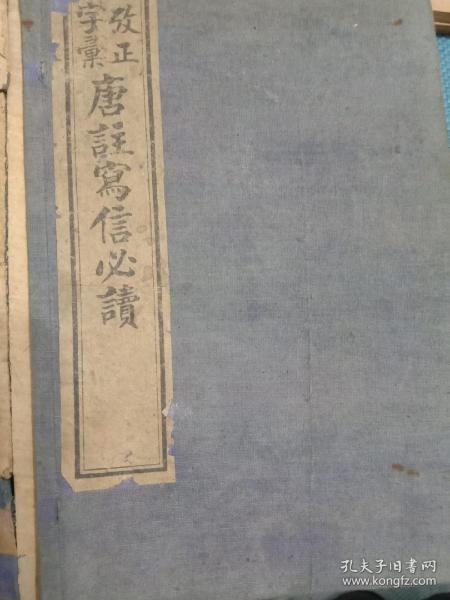 攷正
字彙
唐註寫信必讀
孔夫子旧书网
www.kongfz.com